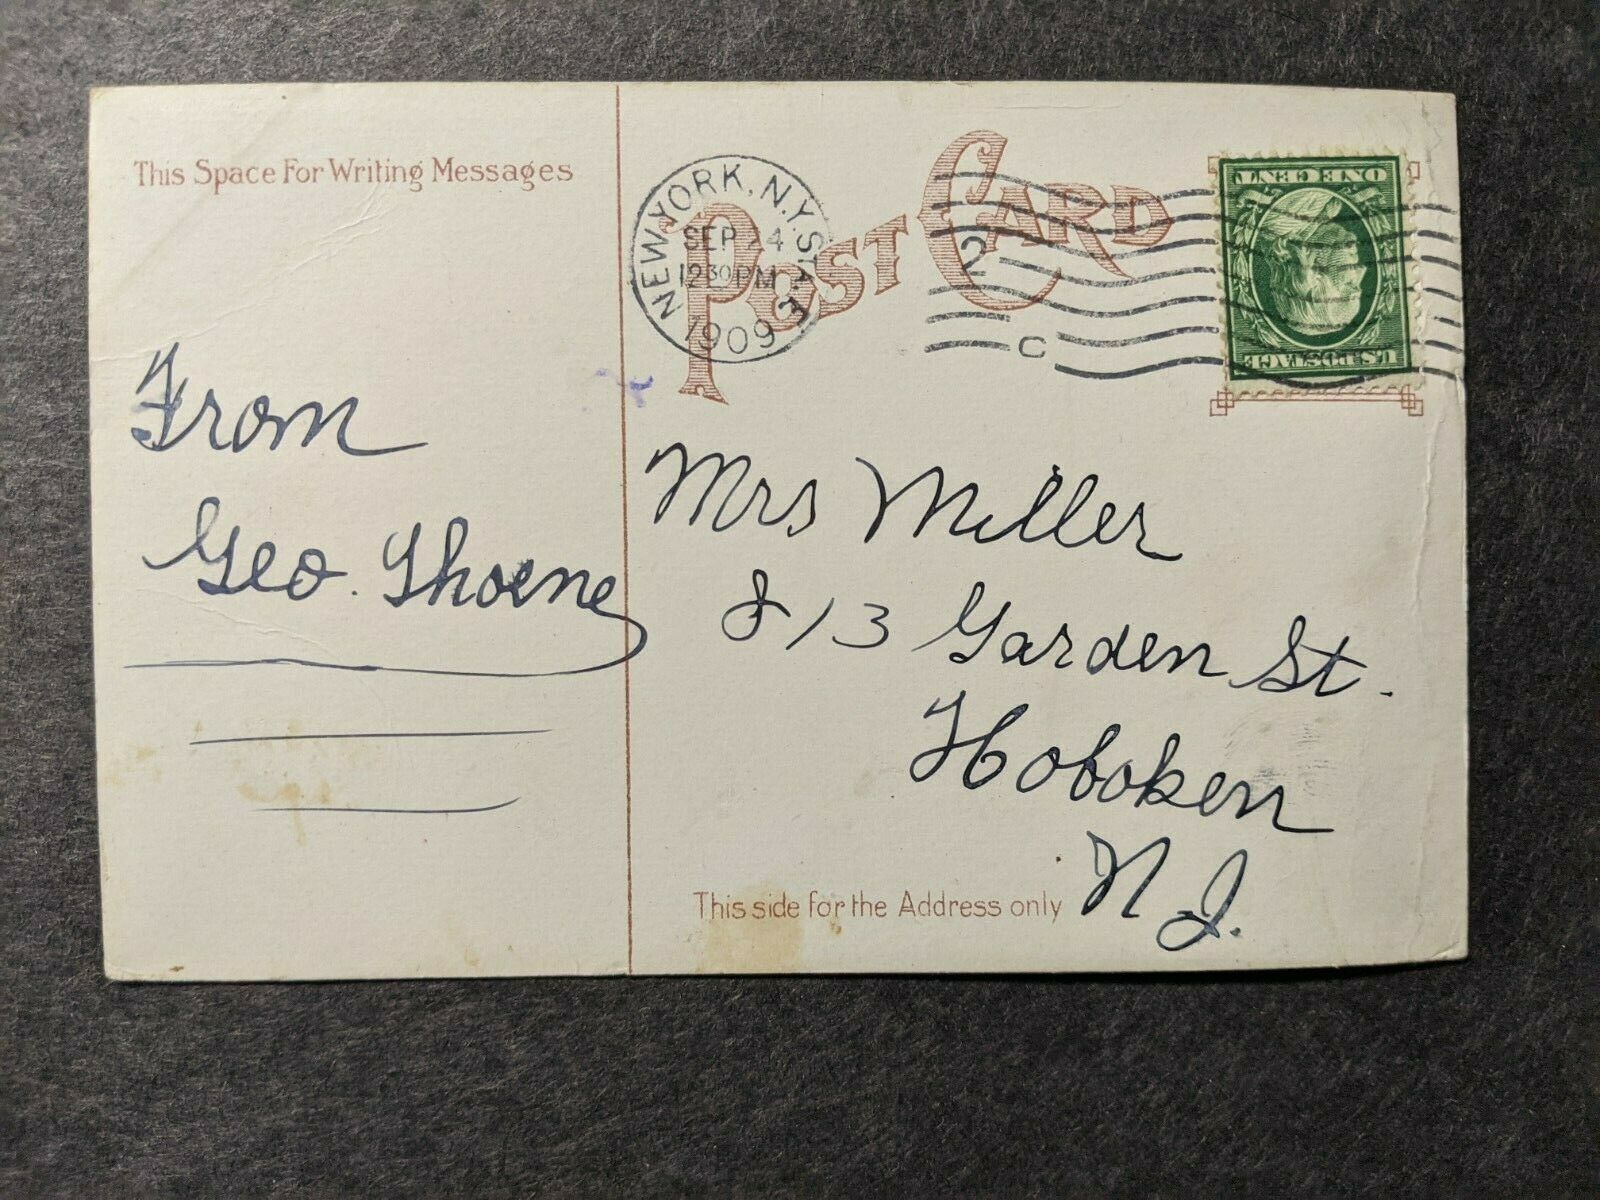 This Space For Writing Messages
POST CARD
NEW YORK, N.Y. STA. F
SEP 24
12 30 PM
1909
2
C
ONE CENT
U.S. POSTAGE
From
Geo. Thoene
Mrs Miller
813 Garden St.
Hoboken
N.J.
This side for the Address only